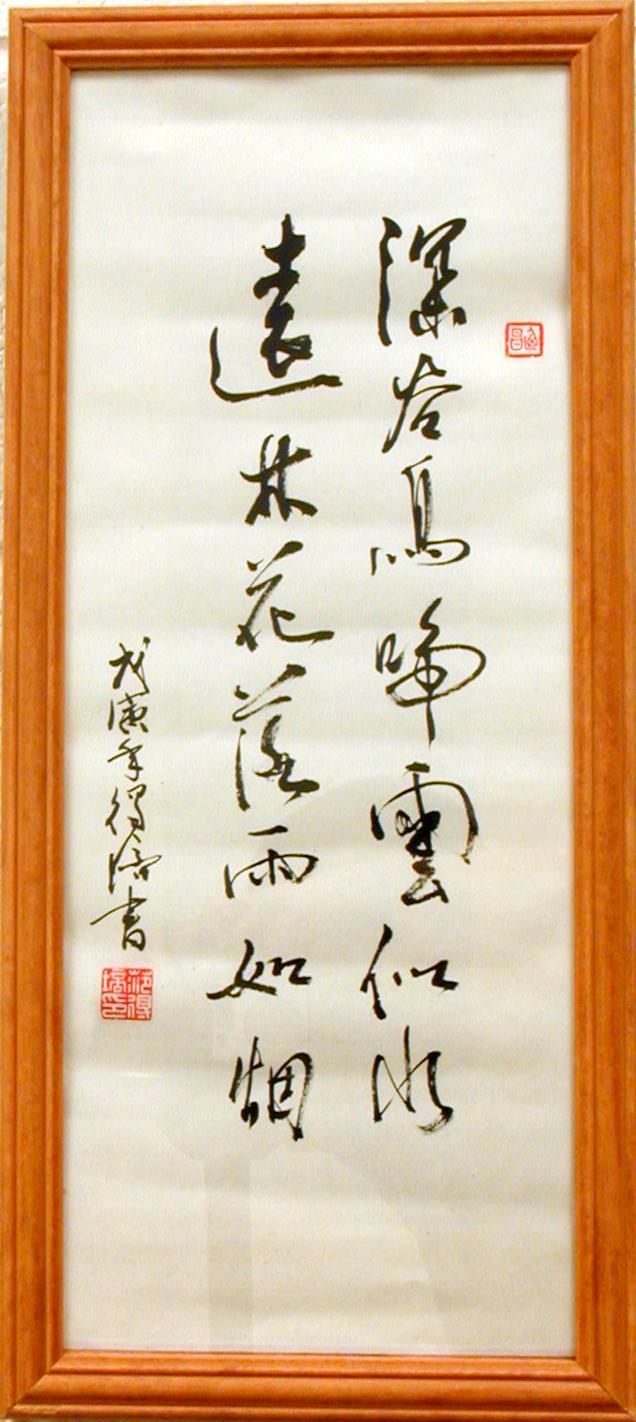 深谷鳥啼雲似水
遠林花落雨如烟
戊寅年得培書